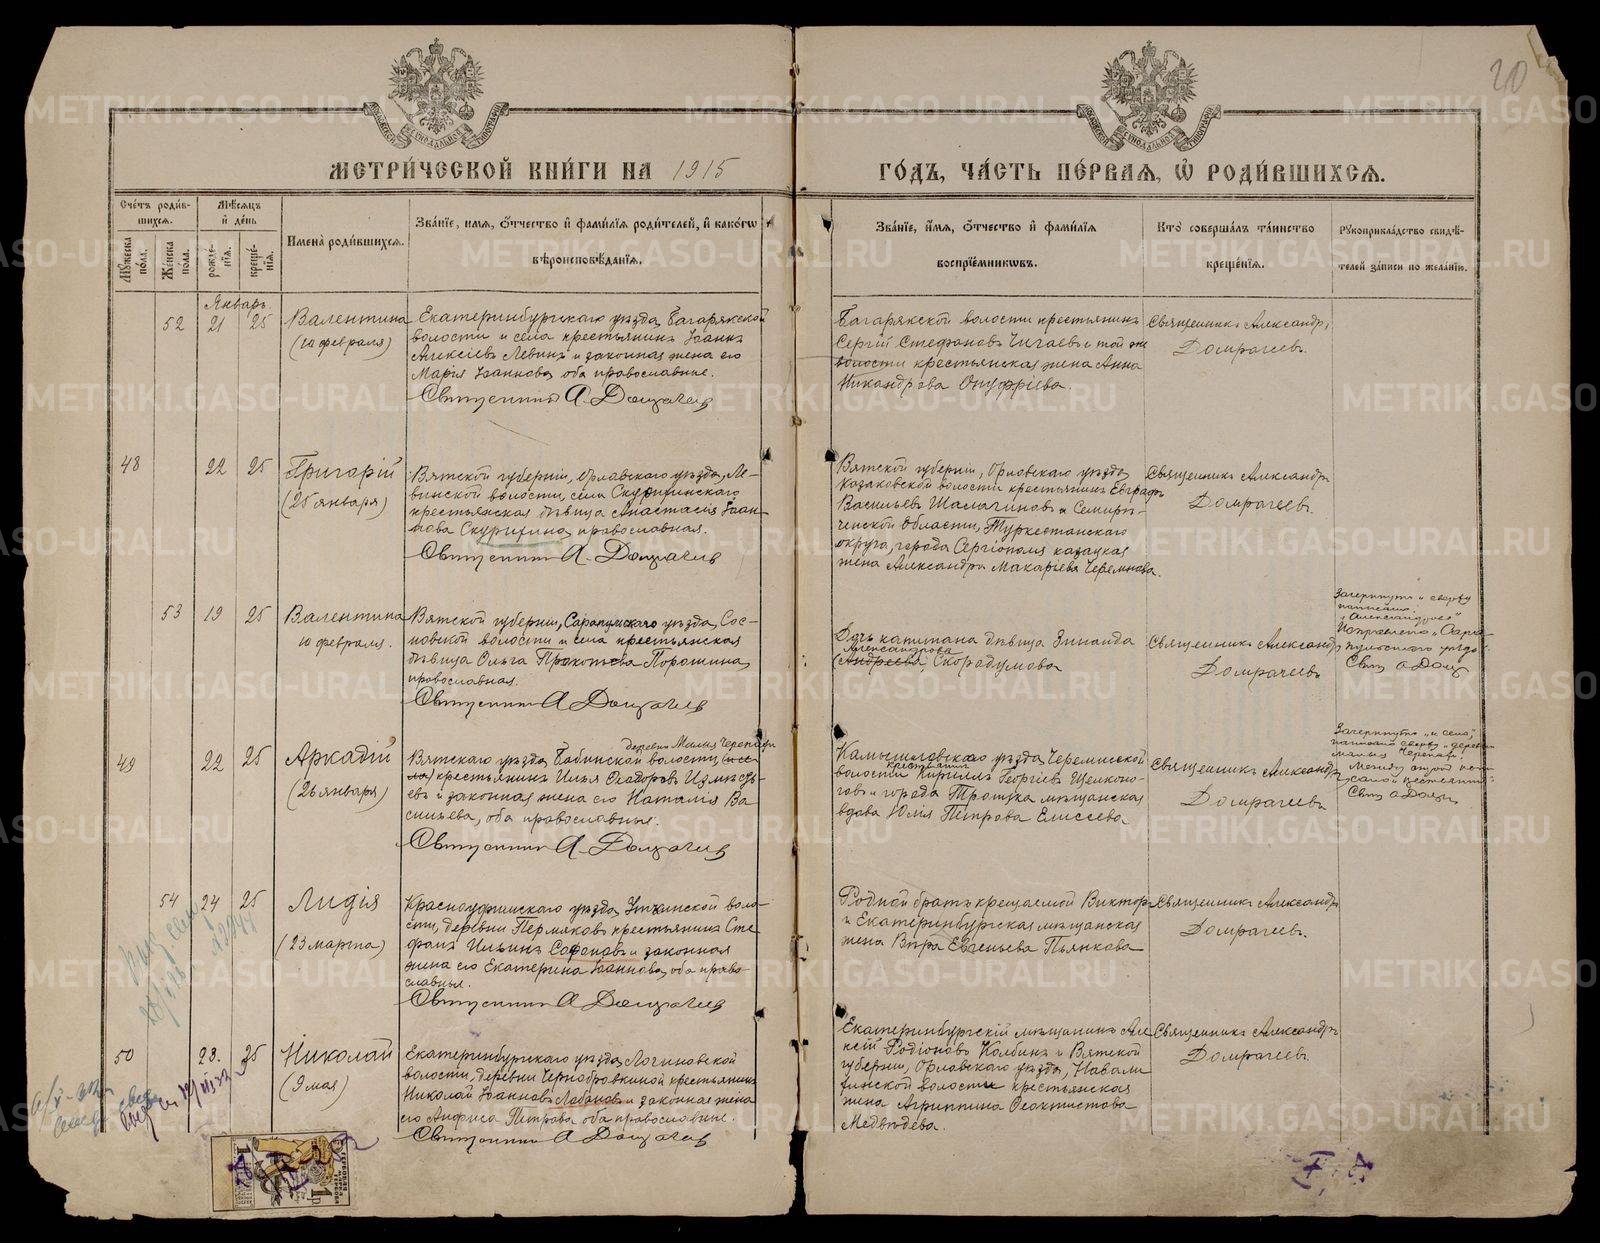 20
МЕТРИ́ЧЕСКОЙ КНИ́ГИ НА 1915
ГО́ДЪ, ЧА́СТЬ ПЕ́РВАѦ, Ѡ҆ РОДИ́ВШИХСѦ.
Сче́тъ роди́в-
шихсѧ.
Мѣ́сѧцъ
и҆ де́нь
Мꙋ́жеска по́ла.
Же́нска по́ла.
рожде́-
нїѧ.
креще́-
нїѧ.
И҆мена̀ роди́вшихсѧ.
Зва́нїе, и҆́мѧ, ѻ҆́тчество и҆ фами́лїѧ роди́телей, и҆ како́гѡ
вѣроисповѣ́данїѧ.
Зва́нїе, и҆́мѧ, ѻ҆́тчество и҆ фами́лїѧ
воспрїе́мникѡвъ.
Кто̀ соверша́лъ та́инство
креще́нїѧ.
Рꙋкоприкла́дство свидѣ́-
телей за́писи по жела́нїю.
Январь
52 21 25 Валентина
(10 февраля)
Екатеринбургскаго уѣзда, Багарякской
волости и села крестьянинъ Іоаннъ
Алексіевъ Левинъ и законная жена его
Марія Іоаннова, оба православные.
Священникъ А. Домрачевъ
Багарякской волости крестьянинъ
Сергій Стефановъ Чичаевъ и той же
волости крестьянская жена Анна
Никандрова Онуфріева.
Священникъ Александръ
Домрачевъ.
48 22 25 Григорій
(25 января)
Вятской губерніи, Орловскаго уѣзда, Ле-
винской волости, села Скурихинскаго
крестьянская дѣвица Анастасія Іоан-
нова Скурихина, православная.
Священникъ А. Домрачевъ
Вятской губерніи, Орловскаго уѣзда
Казаковской волости крестьянинъ Евграфъ
Васильевъ Шалагиновъ и Семирѣ-
ченской Области, Туркестанскаго
округа, города Сергіополя казацкая
жена Александра Макаріева Черемнова.
Священникъ Александръ
Домрачевъ.
53 19 25 Валентина
10 февраля.
Вятской губерніи, Сарапульскаго уѣзда, Сос-
новской волости и села крестьянская
дѣвица Ольга Прокопіева Порошина,
православная.
Священникъ А Домрачевъ
Дочь капитана дѣвица Зинаида
Александрова
(Андреева) Скородумова
Священникъ Александръ
Домрачевъ
Зачеркнуто и сверху
написано:
„Александрова“
Исправлено „Сара-
пульскаго уѣзда“
Свящ А Домр
49 22 25 Аркадій
(26 января)
деревни Малыя Черепахи
Вятскаго уѣзда, Бабинской волости (и се-
ла) крестьянинъ Илья Ѳеодоровъ Измѣстьевъ
и законная жена его Наталія Ва
сильева, оба православные.
Священникъ А. Домрачевъ
Камышловскаго уѣзда, Черемисской
крестьянинъ
волости Кириллъ Георгіевъ Щелконо-
говъ и города Троицка мѣщанская
вдова Юлія Петрова Елисеева
Священникъ Александръ
Домрачевъ
Зачеркнуто „и села“,
написано сверху „деревни
Малыя Черепахи“.
Свящ А Домр
54 24 25 Лидія
(23 марта)
Красноуфимскаго уѣзда, Уткинской воло-
сти, деревни Пермяковъ крестьянинъ Сте
фанъ Ильинъ Сафоновъ и законная
жена его Екатерина Іоаннова, оба право-
славные.
Священникъ А Домрачевъ
Родной братъ крещаемой Викторъ
и Екатеринбургская мѣщанская
жена Вѣра Евгеньева Пьянкова
Священникъ Александръ
Домрачевъ.
50 23. 25 Николай
(9 мая)
Екатеринбургскаго уѣзда, Логиновской
волости, деревни Чернобровкиной крестьянинъ
Николай Іоанновъ Лобановъ и законная жена
его Анфиса Петрова, оба православные.
Священникъ А Домрачевъ
Екатеринбургскій мѣщанинъ Але
ксій Родіоновъ Колбинъ и Вятской
губерніи, Орловскаго уѣзда, Навали
хинской волости крестьянская
жена Агриппина Ѳеоктистова
Медвѣдева.
Священникъ Александръ
Домрачевъ.
METRIKI.GASO-URAL.RU